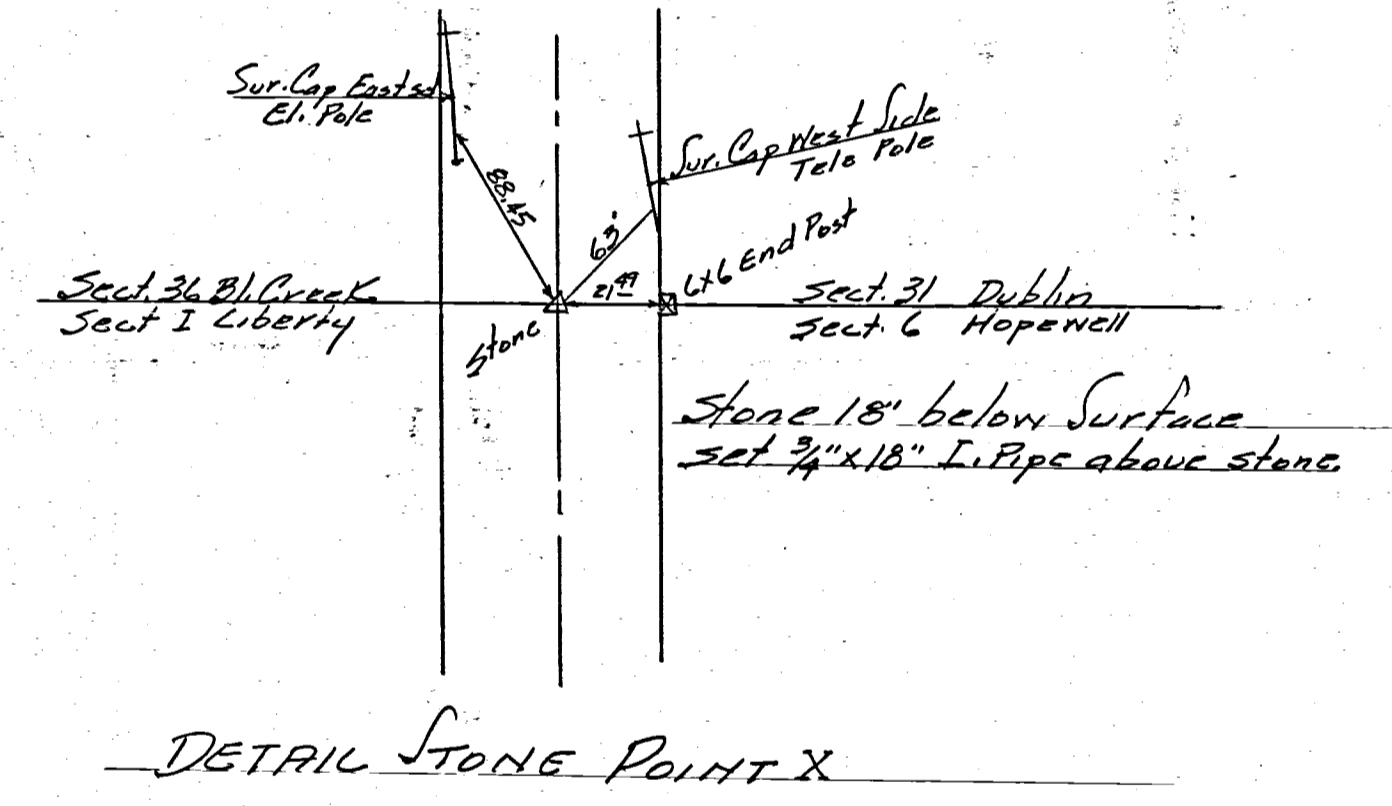 Sur. Cap East sd
El. Pole
Sur. Cap West Side
Tele Pole
88.45
63'
21 49
6x6 End Post
Sect. 36 Bl. Creek
Sect I Liberty
Stone
Sect. 31 Dublin
Sect. 6 Hopewell
Stone 18" below Surface
set 3/4" x 18" I. Pipe above stone.
DETAIL STONE POINT X